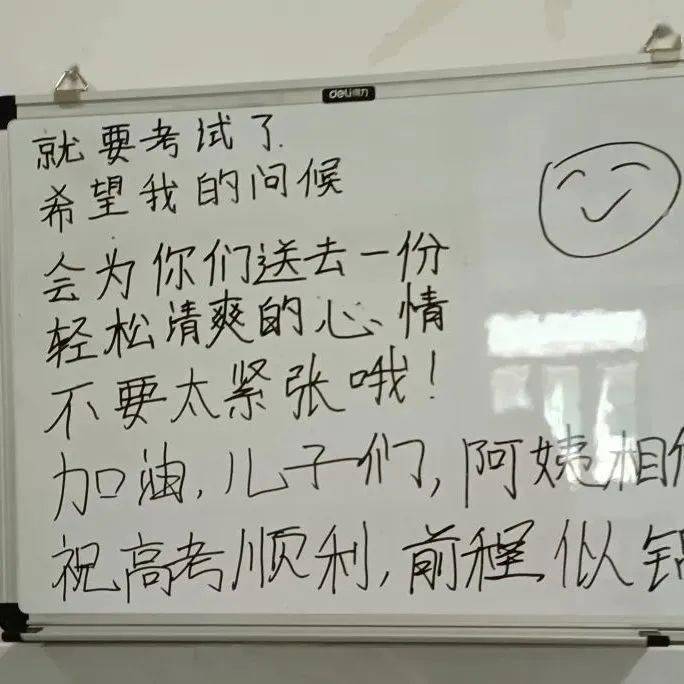 deli得力
就要考试了
希望我的问候
会为你们送去一份
轻松清爽的心情
不要太紧张哦！
加油，儿子们，阿姨相
祝高考顺利，前程似